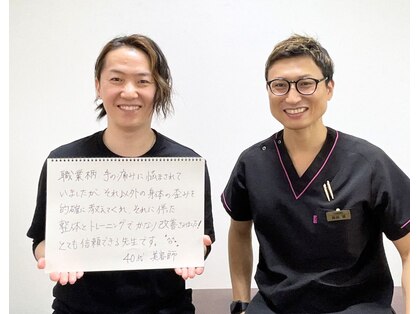 職業柄 手の痛みに悩まされて
いましたが、それ以外の身体の歪みを
的確に教えてくれ、それに伴った
整体とトレーニングでかなり改善されました!
とても信頼できる先生です。
40代 美容師